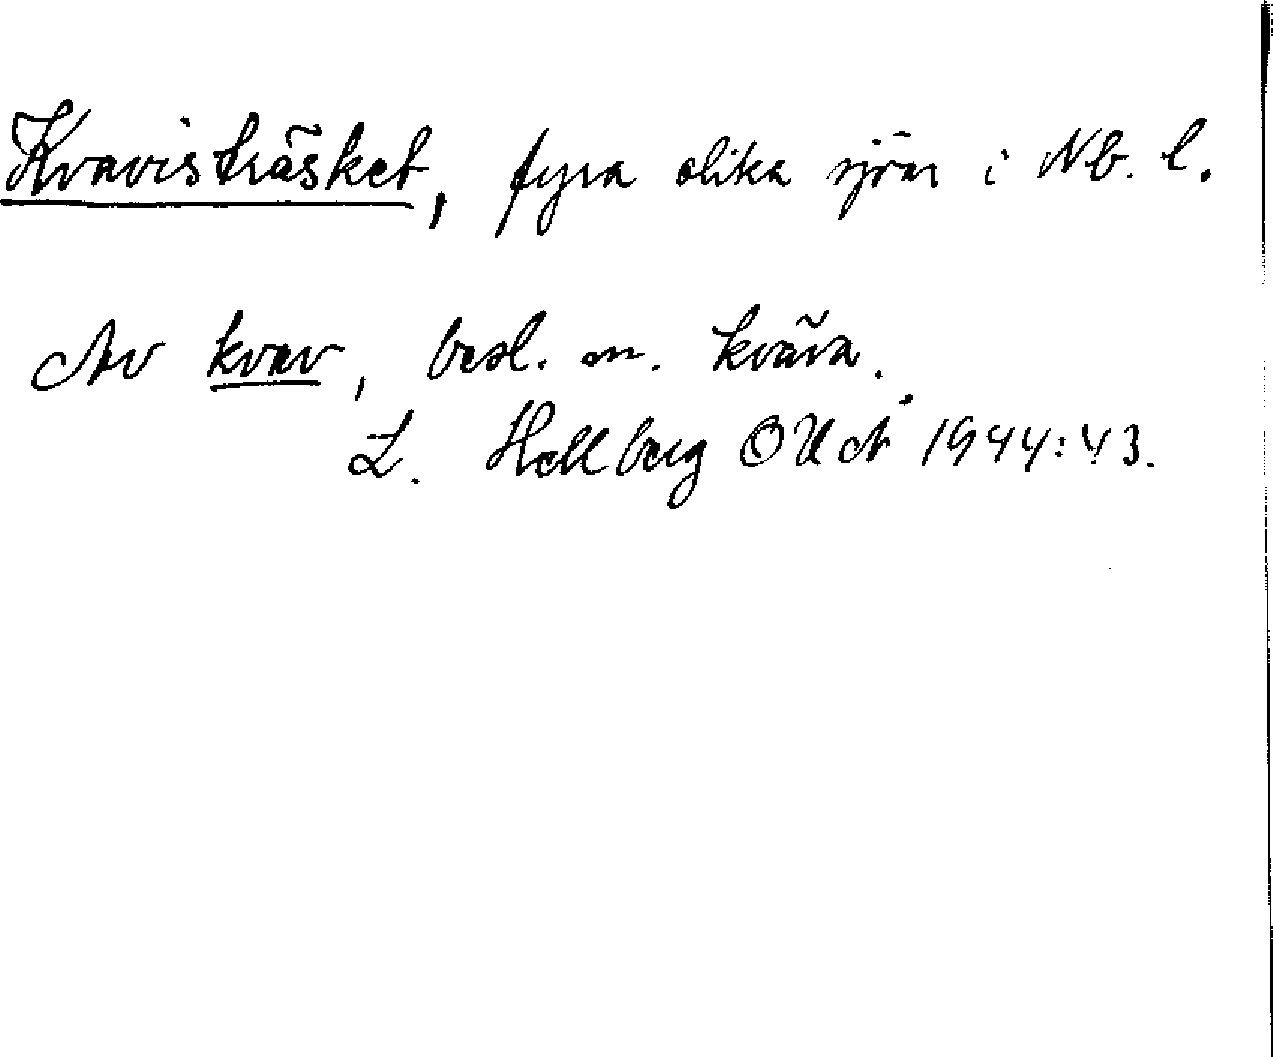 Kvavisträsket, fyra olika sjöar i Nb. l.
Av kvav, besl. m. kväva.
L. Hellberg OUÅ 1944:43.